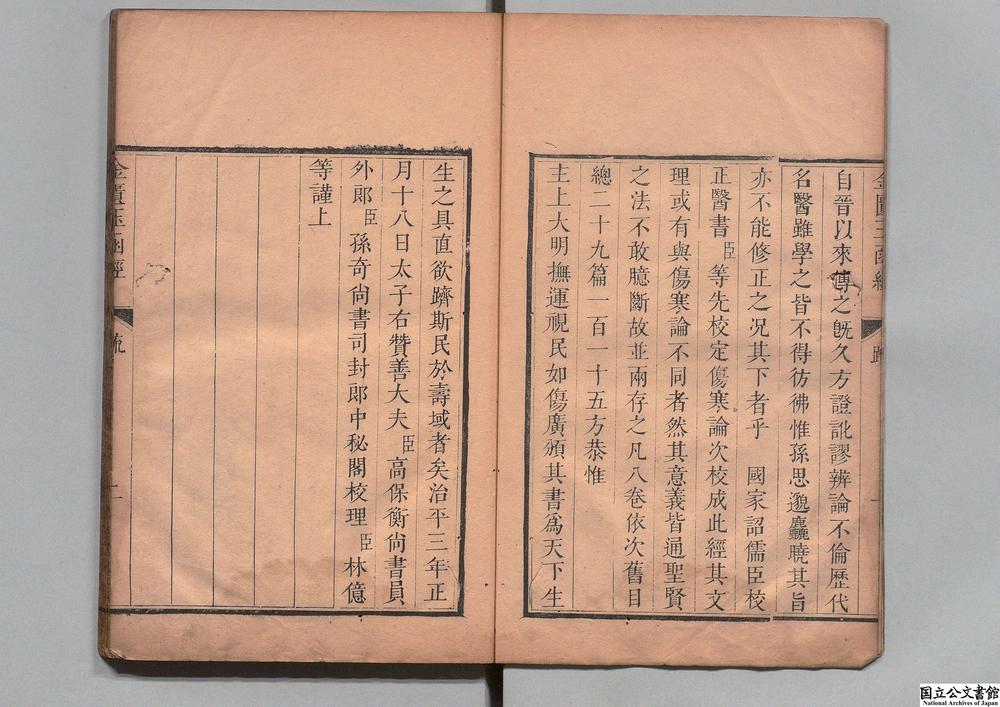 自晉以來傳之既久方證訛謬辨論不倫歷代
名醫雖學之皆不得彷彿惟孫思邈麤曉其旨
亦不能修正之况其下者乎　國家詔儒臣校
正醫書臣等先校定傷寒論次校成此經其文
理或有與傷寒論不同者然其意義皆通聖賢
之法不敢臆斷故並兩存之凡八卷依次舊目
總二十九篇一百一十五方恭惟
主上大明撫運視民如傷廣頒其書爲天下生
生之具直欲躋斯民於壽域者矣治平三年正
月十八日太子右贊善大夫臣高保衡尚書員
外郎臣孫奇尚書司封郎中秘閣校理臣林億
等謹上
金匱玉函經　疏　二
国立公文書館
National Archives of Japan